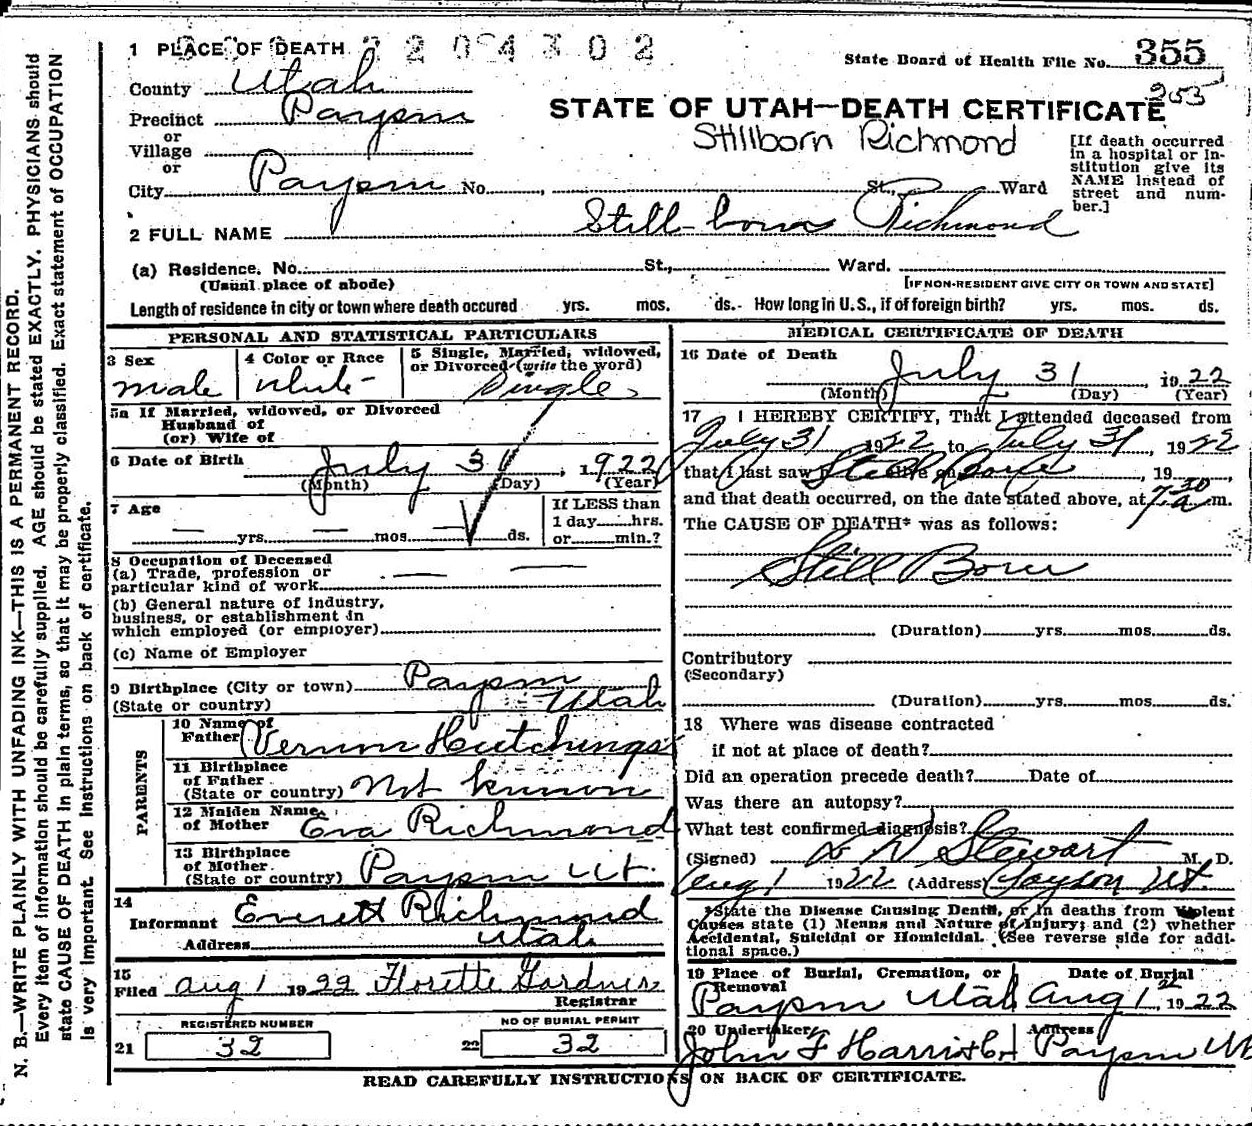 1 PLACE OF DEATH
State Board of Health File No. 355
County Utah
253
Precinct Payson
STATE OF UTAH—DEATH CERTIFICATE
or
Village
or
Stillborn Richmond
[If death occurred in a hospital or institution give its NAME instead of street and number.]
City Payson No. , St., Ward
2 FULL NAME Still-born Richmond
(a) Residence. No. St., Ward.
(Usual place of abode) [IF NON-RESIDENT GIVE CITY OR TOWN AND STATE]
Length of residence in city or town where death occured yrs. mos. ds.- How long in U.S., if of foreign birth? yrs. mos. ds.
PERSONAL AND STATISTICAL PARTICULARS
3 Sex
male
4 Color or Race
White
5 Single, Married, widowed, or Divorced (write the word)
Single
5a If Married, widowed, or Divorced
Husband of
(or) Wife of
6 Date of Birth July 31, 1922
(Month) (Day) (Year)
7 Age
— yrs. — mos. — ds.
If LESS than
1 day hrs.
or min.?
8 Occupation of Deceased
(a) Trade, profession or
particular kind of work — —
(b) General nature of industry,
business, or establishment in
which employed (or employer)
(c) Name of Employer
9 Birthplace (City or town) Payson
(State or country) Utah
PARENTS
10 Name of
Father Vernon Hutchings
11 Birthplace
of Father
(State or country) Not known
12 Maiden Name
of Mother Eva Richmond
13 Birthplace
of Mother
(State or country) Payson Ut.
14
Informant Everett Richmond
Address Utah
15
Filed Aug 1 1922 Florette Gardner
Registrar
REGISTERED NUMBER
21 32
NO OF BURIAL PERMIT
22 32
MEDICAL CERTIFICATE OF DEATH
16 Date of Death July 31, 1922
(Month) (Day) (Year)
17 I HEREBY CERTIFY, That I attended deceased from
July 31 1922 to July 31, 1922
that I last saw h alive on Still Born, 19
and that death occurred, on the date stated above, at 7 30 a m.
The CAUSE OF DEATH* was as follows:
Still Born
(Duration) yrs. mos. ds.
Contributory
(Secondary)
(Duration) yrs. mos. ds.
18 Where was disease contracted
if not at place of death?
Did an operation precede death? Date of
Was there an autopsy?
What test confirmed diagnosis?
(Signed) Stewart M. D.
Aug 1 1922 (Address) Payson Ut.
*State the Disease Causing Death, or in deaths from Violent
Causes state (1) Means and Nature of Injury; and (2) whether
Accidental, Suicidal or Homicidal. (See reverse side for addi-
tional space.)
19 Place of Burial, Cremation, or
Removal
Payson Utah
Date of Burial
Aug 1st 1922
20 Undertaker
John F Harris
Address
Payson Ut
READ CAREFULLY INSTRUCTIONS ON BACK OF CERTIFICATE.
N. B.—WRITE PLAINLY WITH UNFADING INK—THIS IS A PERMANENT RECORD.
Every item of information should be carefully supplied. AGE should be stated EXACTLY. PHYSICIANS should
state CAUSE OF DEATH in plain terms, so that it may be properly classified. Exact statement of OCCUPATION
is very important. See instructions on back of certificate.